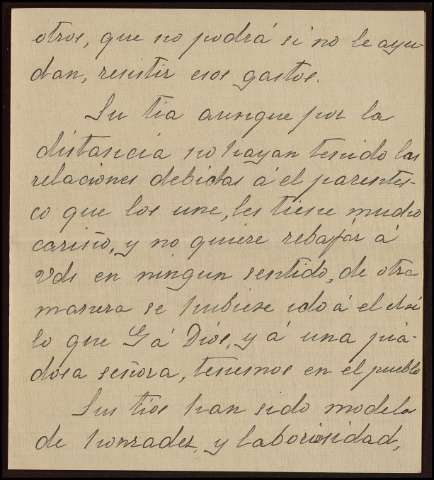 otros, que no podrá si no le ayu-
dan, resistir esos gastos.
Su tia aunque por la
distancia no hayan tenido las
relaciones debidas á el parentes-
co que los une, les tiene mucho
cariño, y no quiere rebajár á
Vds en ningun sentido, de otra
manera se hubiese ido á el asi
lo que Gá Dios, y á una pia-
dosa señora, tenemos en el pueblo
Sus tios han sido modelo
de honradez y laboriosidad,